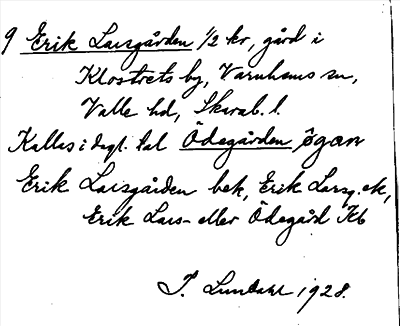 9 Erik Larsgården 1/2 kr, gård i
Klostrets by, Varnhems sn,
Valle hd, Skarab. l.
Kallas i dagl. tal Ödegården, øgan
Erik Larsgården bek, Erik Larsg. ek,
Erik Lars- eller Ödegård Kb
I. Lundahl 1928.